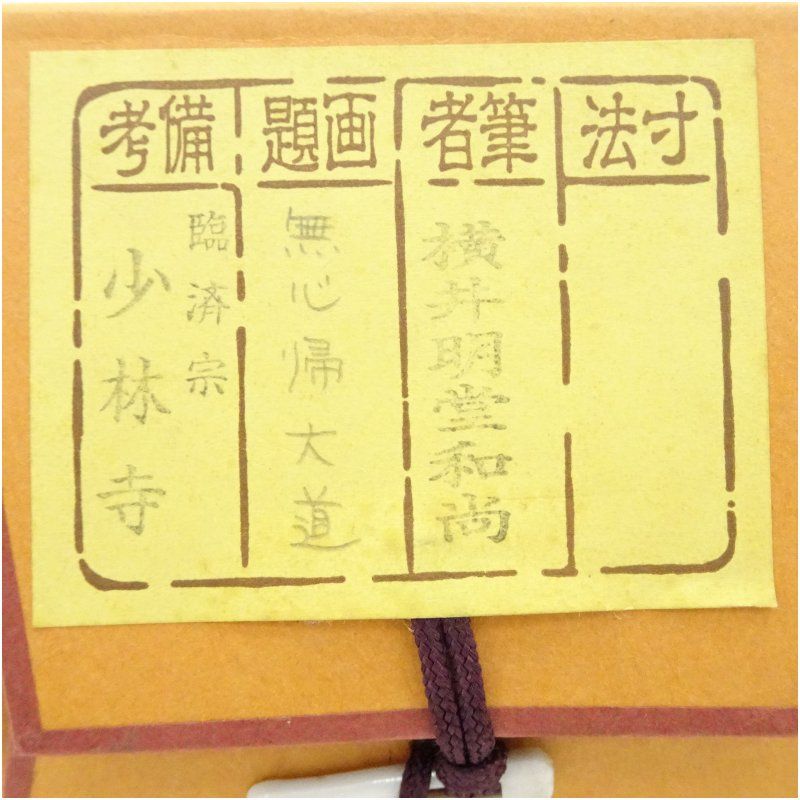 寸法
筆者
横井明堂和尚
画題
無心帰大道
備考
臨済宗
少林寺